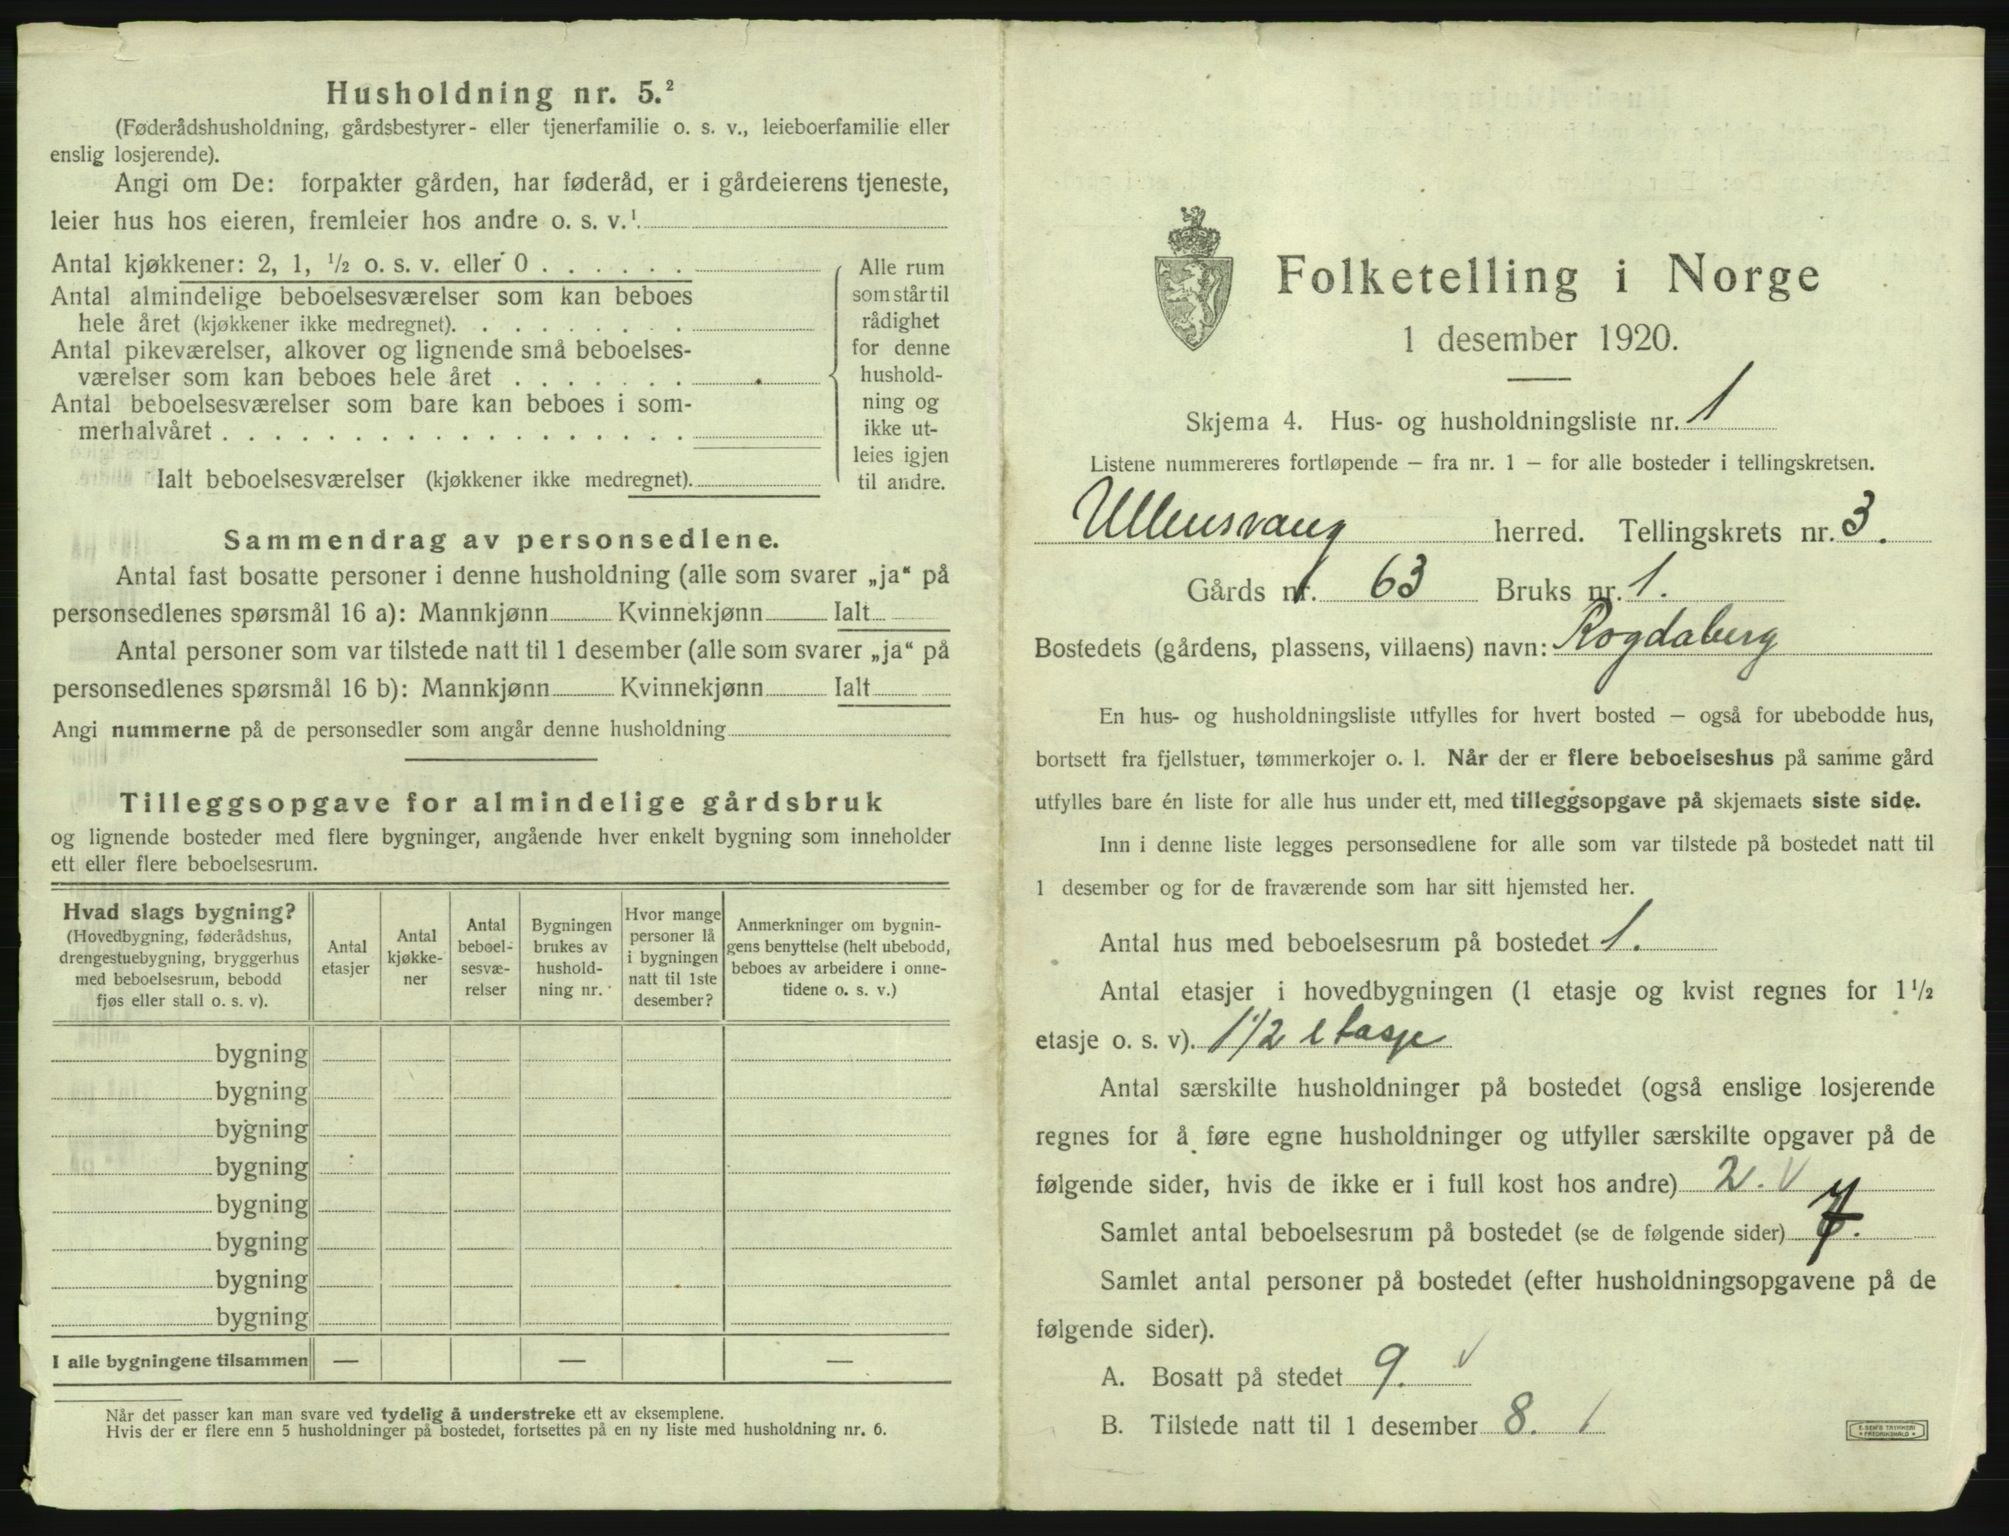 Husholdning nr. 5.²
(Føderådshusholdning, gårdsbestyrer- eller tjenerfamilie o. s. v., leieboerfamilie eller
enslig losjerende).
Angi om De: forpakter gården, har føderåd, er i gårdeierens tjeneste,
leier hus hos eieren, fremleier hos andre o. s. v.¹
Antal kjøkkener: 2, 1, ¹/₂ o. s. v. eller 0 . . . . . .
Antal almindelige beboelsesværelser som kan beboes
hele året (kjøkkener ikke medregnet). . . . . . . . .
Antal pikeværelser, alkover og lignende små beboelses-
værelser som kan beboes hele året . . . . . . .
Antal beboelsesværelser som bare kan beboes i som-
merhalvåret . . . . . . . . . . . . . . . . . .
Ialt beboelsesværelser (kjøkkener ikke medregnet).
Alle rum
som står til
rådighet
for denne
hushold-
ning og
ikke ut-
leies igjen
til andre.
Sammendrag av personsedlene.
Antal fast bosatte personer i denne husholdning (alle som svarer „ja“ på
personsedlenes spørsmål 16 a): Mannkjønn Kvinnekjønn Ialt
Antal personer som var tilstede natt til 1 desember (alle som svarer „ja“ på
personsedlenes spørsmål 16 b): Mannkjønn Kvinnekjønn Ialt
Angi nummerne på de personsedler som angår denne husholdning
Tilleggsopgave for almindelige gårdsbruk
og lignende bosteder med flere bygninger, angående hver enkelt bygning som inneholder
ett eller flere beboelsesrum.
Hvad slags bygning?
(Hovedbygning, føderådshus,
drengestuebygning, bryggerhus
med beboelsesrum, bebodd
fjøs eller stall o. s. v).
Antal
etasjer
Antal
kjøkke-
ner
Antal
beboel-
sesvæ-
relser
Bygningen
brukes av
hushold-
ning nr.
Hvor mange
personer lå
i bygningen
natt til 1ste
desember?
Anmerkninger om bygnin-
gens benyttelse (helt ubebodd,
beboes av arbeidere i onne-
tidene o. s. v.)
bygning
bygning
bygning
bygning
bygning
bygning
bygning
bygning
I alle bygningene tilsammen — — —
Når det passer kan man svare ved tydelig å understreke ett av eksemplene.
Hvis der er flere enn 5 husholdninger på bostedet, fortsettes på en ny liste med husholdning nr. 6.
Folketelling i Norge
1 desember 1920.
Skjema 4. Hus- og husholdningsliste nr. 1
Listene nummereres fortløpende – fra nr. 1 – for alle bosteder i tellingskretsen.
Ullensvang herred. Tellingskrets nr. 3.
Gårds nr. 63 Bruks nr. 1.
Bostedets (gårdens, plassens, villaens) navn: Rogdaberg
En hus- og husholdningsliste utfylles for hvert bosted – også for ubebodde hus,
bortsett fra fjellstuer, tømmerkojer o. l. Når der er flere beboelseshus på samme gård
utfylles bare én liste for alle hus under ett, med tilleggsopgave på skjemaets siste side.
Inn i denne liste legges personsedlene for alle som var tilstede på bostedet natt til
1 desember og for de fraværende som har sitt hjemsted her.
Antal hus med beboelsesrum på bostedet 1.
Antal etasjer i hovedbygningen (1 etasje og kvist regnes for 1 ¹/₂
etasje o. s. v). 1 1/2 etasje
Antal særskilte husholdninger på bostedet (også enslige losjerende
regnes for å føre egne husholdninger og utfyller særskilte opgaver på de
følgende sider, hvis de ikke er i full kost hos andre) 2. v
Samlet antal beboelsesrum på bostedet (se de følgende sider) 7.
Samlet antal personer på bostedet (efter husholdningsopgavene på de
følgende sider).
A. Bosatt på stedet 9. v
B. Tilstede natt til 1 desember 8. 1
E. SEM'S TRYKKERI
FREDRIKSHALD